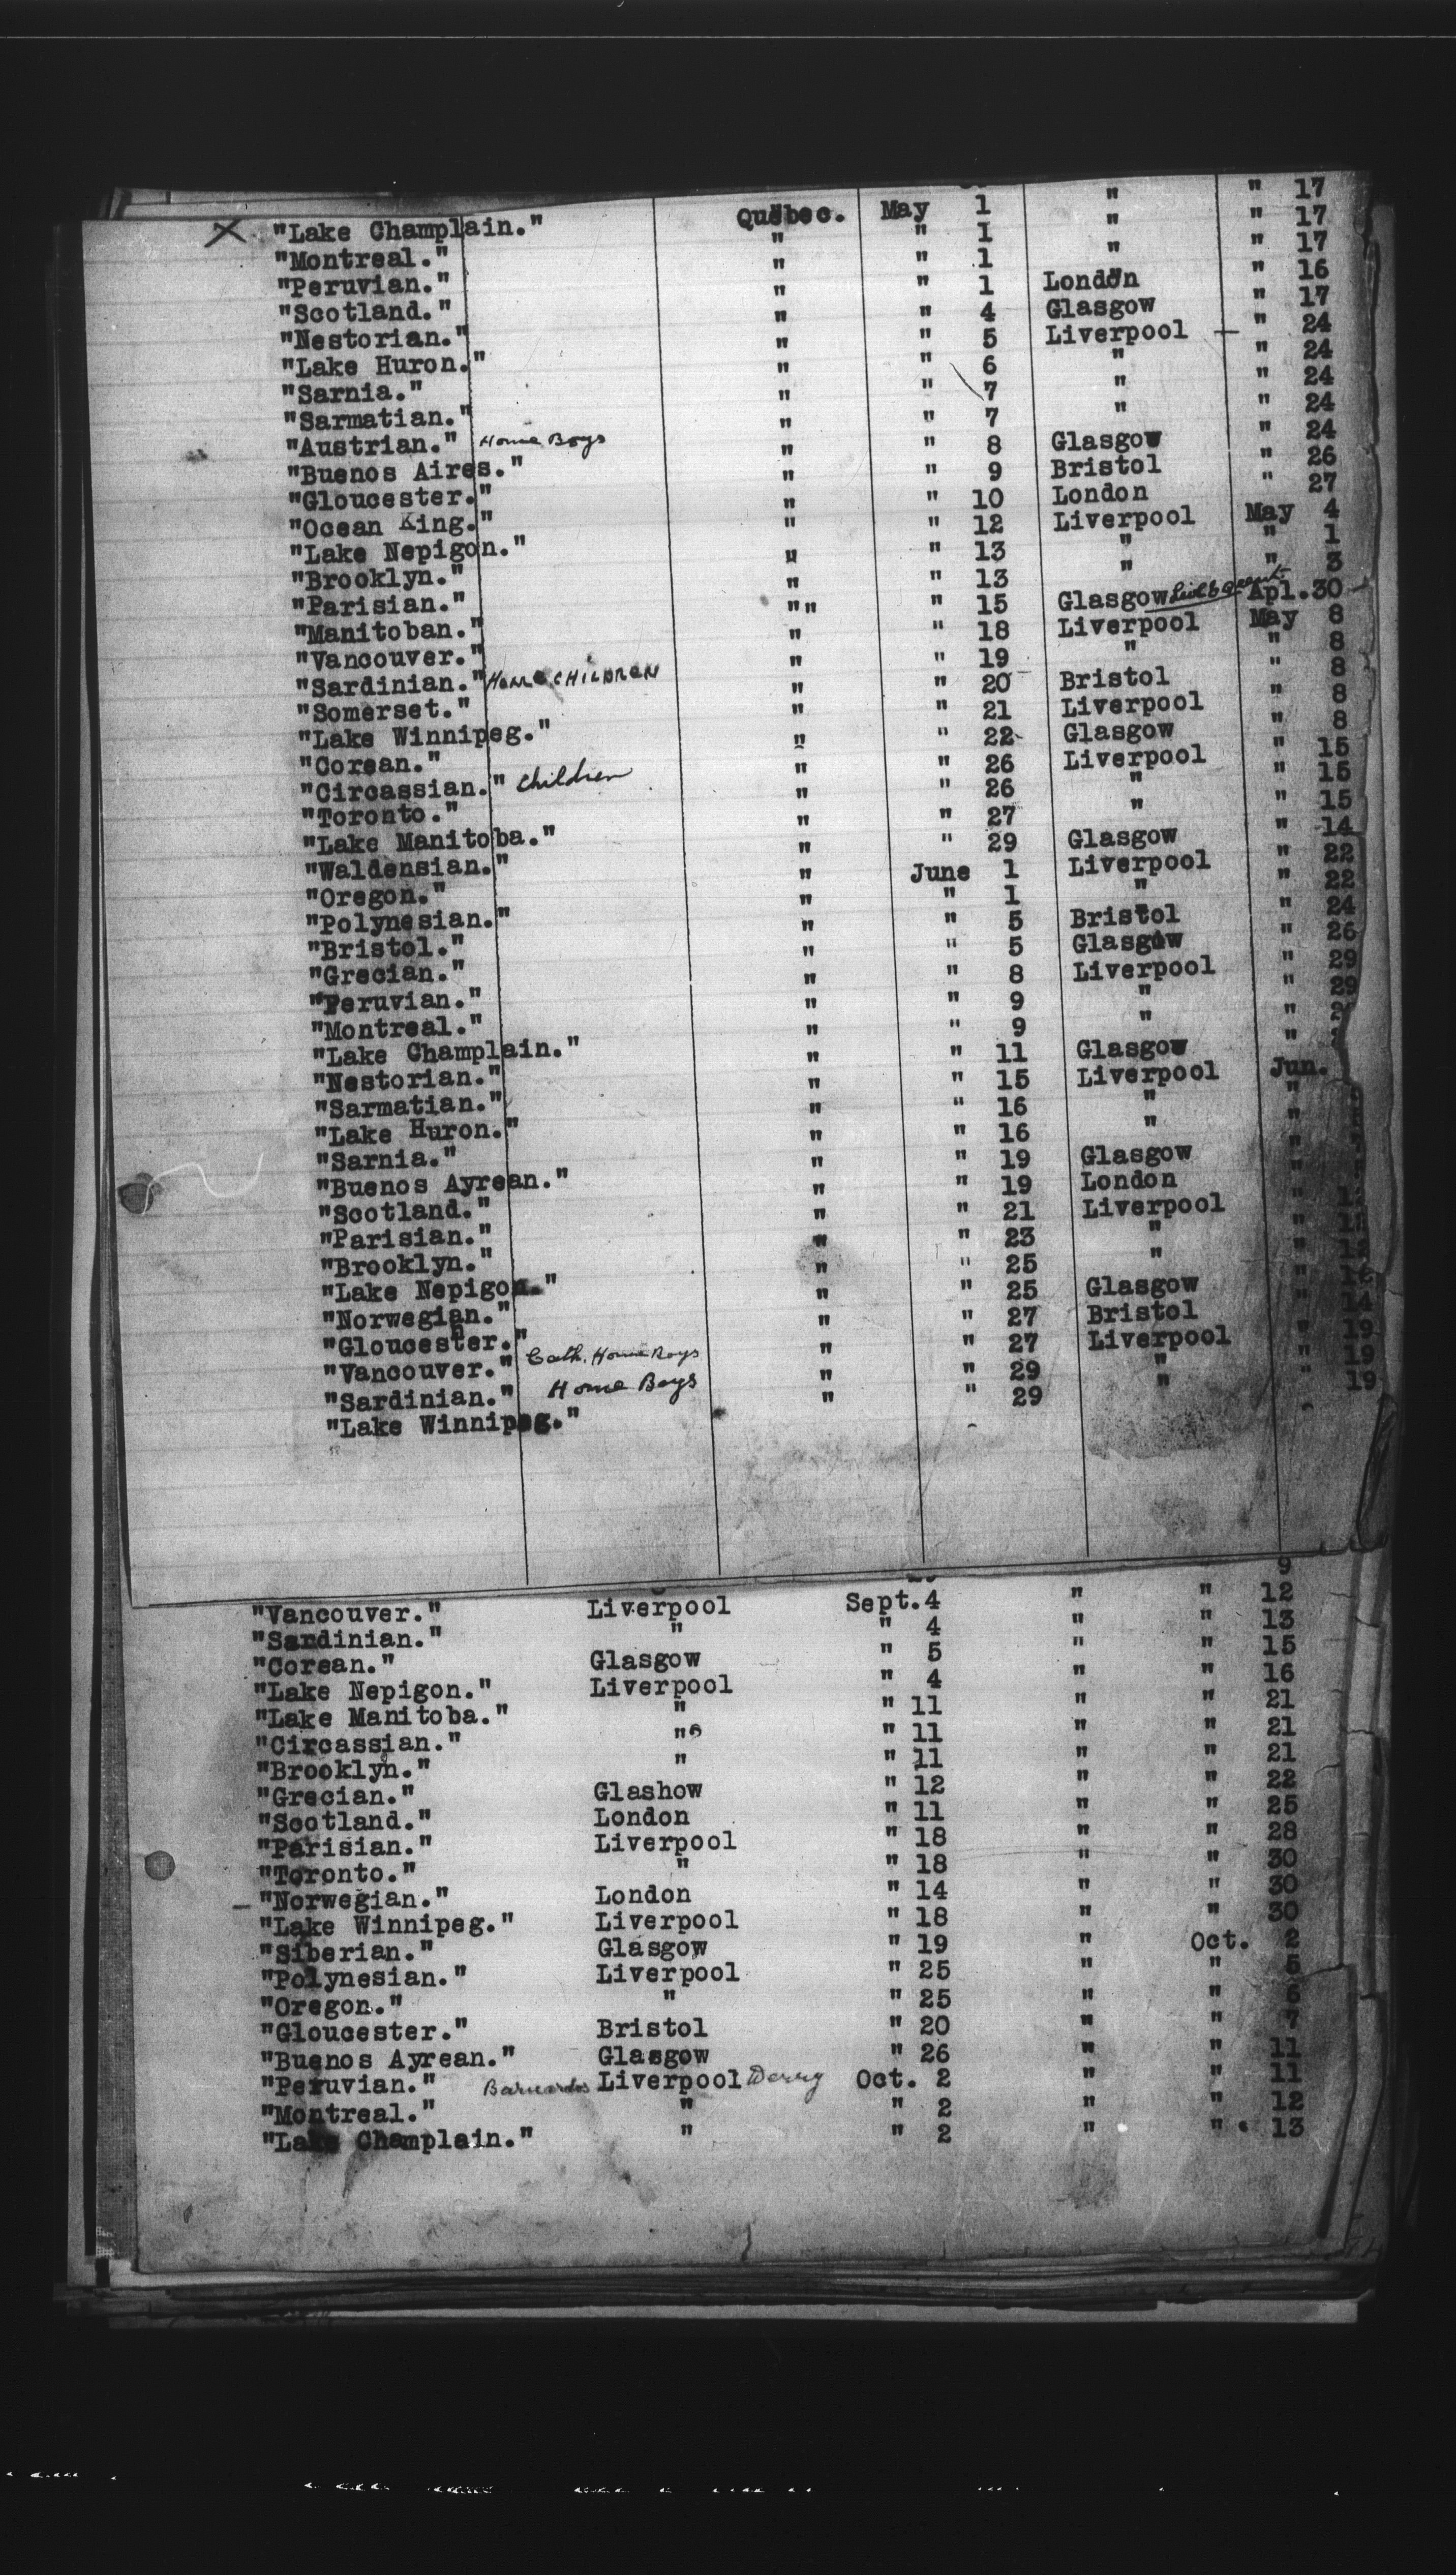 X "Lake Champlain." Quebec. May 1 " " 17
"Montreal." " " 1 " " 17
"Peruvian." " " 1 " " 17
"Scotland." " " 1 London " 16
"Nestorian." " " 4 Glasgow " 17
"Lake Huron." " " 5 Liverpool " 24
"Sarnia." " " 6 " " 24
"Sarmatian." " " 7 " " 24
"Austrian." Home Boys " " 7 " " 24
"Buenos Aires." " " 8 Glasgow " 24
"Gloucester." " " 9 Bristol " 26
"Ocean King." " " 10 London " 27
"Lake Nepigon." " " 12 Liverpool May 4
"Brooklyn." " " 13 " " 1
"Parisian." " " 13 " " 3
"Manitoban." "" " 15 Glasgow Apl.30
"Vancouver." " " 18 Liverpool May 8
"Sardinian." Home CHILDREN " " 19 " " 8
"Somerset." " " 20 Bristol " 8
"Lake Winnipeg." " " 21 Liverpool " 8
"Corean." " " 22 Glasgow " 8
"Circassian." Children " " 26 Liverpool " 15
"Toronto." " " 26 " " 15
"Lake Manitoba." " " 27 " " 15
"Waldensian." " " 29 Glasgow " 14
"Oregon." " June 1 Liverpool " 22
"Polynesian." " " 1 " " 22
"Bristol." " " 5 Bristol " 24
"Grecian." " " 5 Glasgow " 26
"Peruvian." " " 8 Liverpool " 29
"Montreal." " " 9 " " 29
"Lake Champlain." " " 9 " "
"Nestorian." " " 11 Glasgow "
"Sarmatian." " " 15 Liverpool Jun.
"Lake Huron." " " 16 " "
"Sarnia." " " 16 " "
"Buenos Ayrean." " " 19 Glasgow "
"Scotland." " " 19 London "
"Parisian." " " 21 Liverpool "
"Brooklyn." " " 23 " "
"Lake Nepigon." " " 25 " "
"Norwegian." " " 25 Glasgow " 12
"Gloucester." " " 27 Bristol " 14
"Vancouver." Cath. Home Boys " " 27 Liverpool " 19
"Sardinian." Home Boys " " 29 " " 19
"Lake Winnipeg." " " 29 " " 19
9
"Vancouver." Liverpool Sept.4 " " 12
"Sardinian." " " 4 " " 13
"Corean." Glasgow " 5 " " 15
"Lake Nepigon." Liverpool " 4 " " 16
"Lake Manitoba." " " 11 " " 21
"Circassian." " " 11 " " 21
"Brooklyn." " " 11 " " 21
"Grecian." Glashow " 12 " " 22
"Scotland." London " 11 " " 25
"Parisian." Liverpool " 18 " " 28
"Toronto." " " 18 " " 30
"Norwegian." London " 14 " " 30
"Lake Winnipeg." Liverpool " 18 " " 30
"Siberian." Glasgow " 19 " Oct. 2
"Polynesian." Liverpool " 25 " " 5
"Oregon." " " 25 " " 6
"Gloucester." Bristol " 20 " " 7
"Buenos Ayrean." Glasgow " 26 " " 11
"Peruvian." Barnardos Liverpool Derry Oct. 2 " " 11
"Montreal." " " 2 " " 12
"Lake Champlain." " " 2 " " 13